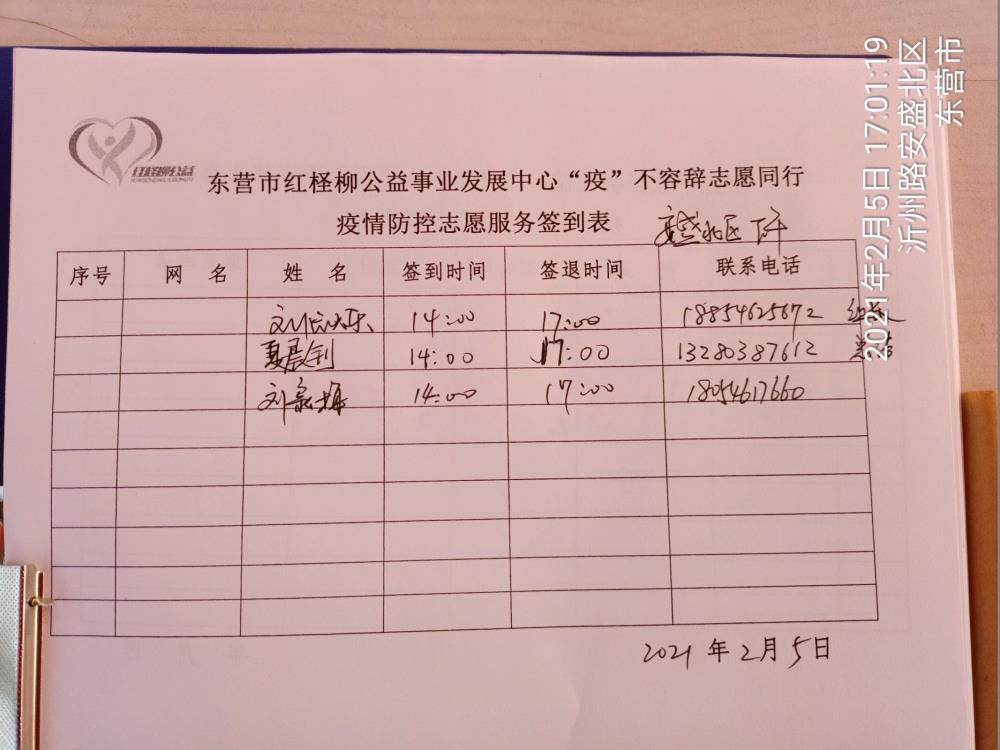 红柽柳公益
东营市红柽柳公益事业发展中心“疫”不容辞志愿同行
疫情防控志愿服务签到表
安盛北区 下午
序号 网 名 姓 名 签到时间 签退时间 联系电话
14:00 17:00 18854625672
夏晨钊 14:00 17:00 13280387612
14:00 17:00 18054617660
2021年2月5日
2021年2月5日 17:01:19
沂州路安盛北区
东营市